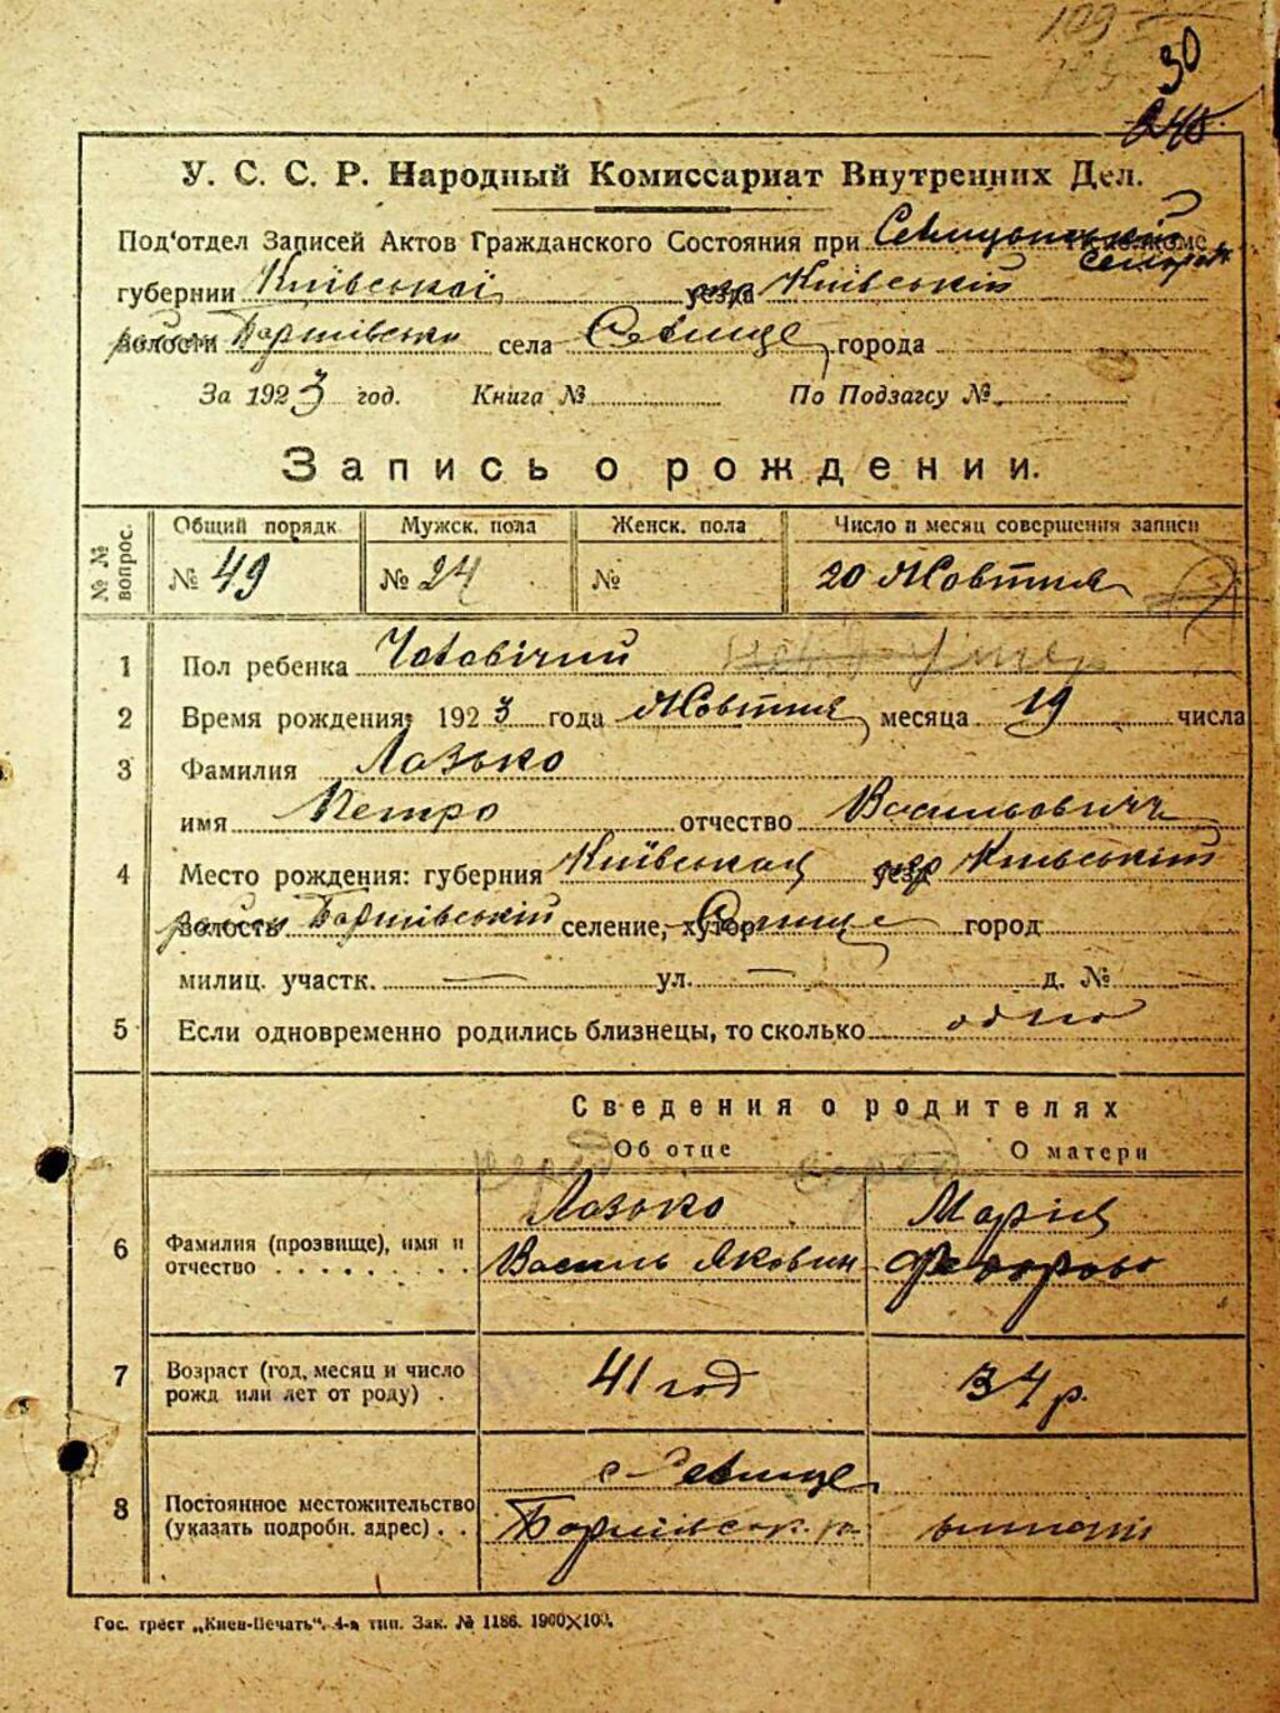 30
245
У. С. С. Р. Народный Комиссариат Внутренних Дел.
Под'отдел Записей Актов Гражданского Состояния при
губернии Київської Київський
Баришівськи села Селище города
За 1923 год. Книга № По Подзагсу №
Запись о рождении.
№№ вопрос. Общий порядк. Мужск. пола Женск. пола Число и месяц совершения записи
№ 49 № 24 № 20 Жовтня
1 Пол ребенка Чоловічий
2 Время рождения: 1923 года Жовтня месяца 19 числа
3 Фамилия Лазько
имя Петро отчество Васильович
4 Место рождения: губерния Київська Київський
Баришівський селение, хутор Селище город
милиц. участк. — ул. — д. № —
5 Если одновременно родились близнецы, то сколько одно
Сведения о родителях
Об отце О матери
6 Фамилия (прозвище), имя и отчество Лазько Василь Якович Марія Федоров
7 Возраст (год, месяц и число рожд или лет от роду) 41 год 34 р.
8 Постоянное местожительство (указать подробн. адрес) с Селище Баришівськ. р.
Гос. трест „Киев-Печать“. 4-я тип. Зак. № 1186. 1900×100.